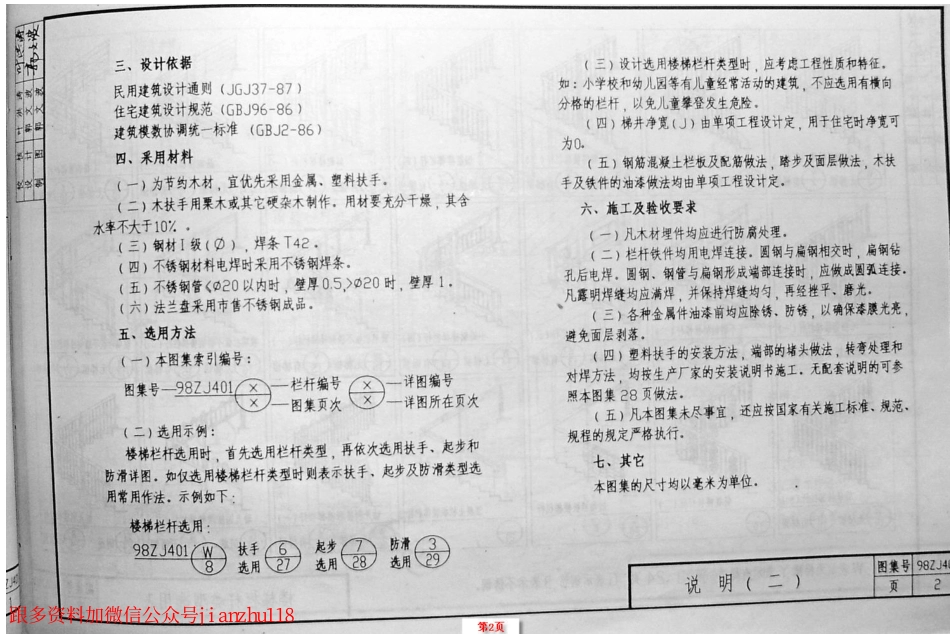 三、设计依据
民用建筑设计通则(JGJ37-87)
住宅建筑设计规范(GBJ96-86)
建筑模数协调统一标准(GBJ2-86)
四、采用材料
(一)为节约木材,宜优先采用金属、塑料扶手。
(二)木扶手用栗木或其它硬杂木制作。用材要充分干燥,其含
水率不大于10%。
(三)钢材I级(∅),焊条T42。
(四)不锈钢材料电焊时采用不锈钢焊条。
(五)不锈钢管≤∅20以内时,壁厚0.5,>∅20时,壁厚1。
(六)法兰盘采用市售不锈钢成品。
五、选用方法
(一)本图集索引编号:
图集号 98ZJ401 × 栏杆编号 × 详图编号
× 图集页次 × 详图所在页次
(二)选用示例:
楼梯栏杆选用时,首先选用栏杆类型,再依次选用扶手、起步和
防滑详图。如仅选用楼梯栏杆类型时则表示扶手、起步及防滑类型选
用常用作法。示例如下:
楼梯栏杆选用:
98ZJ401 W 扶手 6 起步 7 防滑 3
8 选用 27 选用 28 选用 29
(三)设计选用楼梯栏杆类型时,应考虑工程性质和特征。
如:小学校和幼儿园等有儿童经常活动的建筑,不应选用有横向
分格的栏杆,以免儿童攀登发生危险。
(四)梯井净宽(J)由单项工程设计定,用于住宅时净宽可
为0。
(五)钢筋混凝土栏板及配筋做法,踏步及面层做法,木扶
手及铁件的油漆做法均由单项工程设计定。
六、施工及验收要求
(一)凡木材埋件均应进行防腐处理。
(二)栏杆铁件均用电焊连接。圆钢与扁钢相交时,扁钢钻
孔后电焊。圆钢、钢管与扁钢形成端部连接时,应做成圆弧连接。
凡露明焊缝均应满焊,并保持焊缝均匀,再经挫平、磨光。
(三)各种金属件油漆前均应除锈、防锈,以确保漆膜光亮,
避免面层剥落。
(四)塑料扶手的安装方法,端部的堵头做法,转弯处理和
对焊方法,均按生产厂家的安装说明书施工。无配套说明的可参
照本图集28页做法。
(五)凡本图集未尽事宜,还应按国家有关施工标准、规范、
规程的规定严格执行。
七、其它
本图集的尺寸均以毫米为单位。
说明(二)
图集号 98ZJ40
页 2
跟多资料加微信公众号jianzhu118
第2页